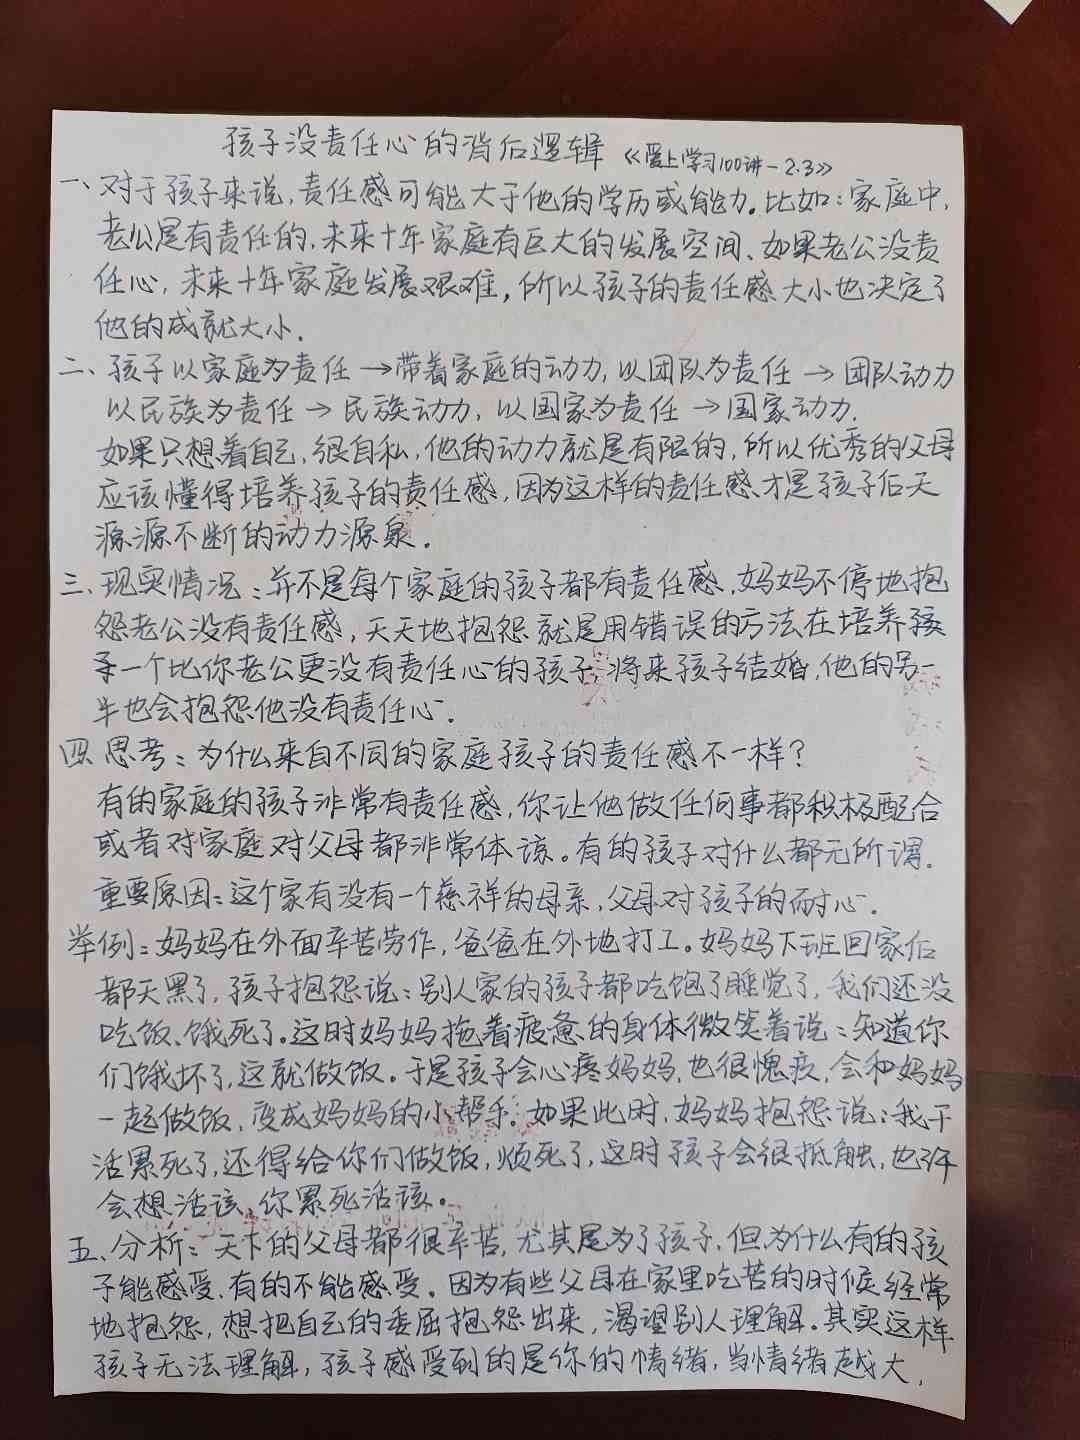 孩子没责任心的背后逻辑 《爱上学习100讲-2.3》
一、对于孩子来说,责任感可能大于他的学历或能力.比如:家庭中,
老公是有责任的,未来十年家庭有巨大的发展空间、如果老公没责
任心,未来十年家庭发展艰难,所以孩子的责任感大小也决定了
他的成就大小.
二、孩子以家庭为责任→带着家庭的动力,以团队为责任→团队动力
以民族为责任→民族动力,以国家为责任→国家动力.
如果只想着自己,很自私,他的动力就是有限的,所以优秀的父母
应该懂得培养孩子的责任感,因为这样的责任感才是孩子后天
源源不断的动力源泉.
三、现实情况:并不是每个家庭的孩子都有责任感,妈妈不停地抱
怨老公没有责任感,天天地抱怨就是用错误的方法在培养孩
子一个比你老公更没有责任心的孩子,将来孩子结婚,他的另一
半也会抱怨他没有责任心.
四、思考:为什么来自不同的家庭孩子的责任感不一样?
有的家庭的孩子非常有责任感,你让他做任何事都积极配合
或者对家庭对父母都非常体谅。有的孩子对什么都无所谓.
重要原因:这个家有没有一个慈祥的母亲,父母对孩子的耐心.
举例:妈妈在外面辛苦劳作,爸爸在外地打工。妈妈下班回家后
都天黑了,孩子抱怨说:别人家的孩子都吃饱了睡觉了,我们还没
吃饭、饿死了。这时妈妈拖着疲惫的身体微笑着说:知道你
们饿坏了,这就做饭。于是孩子会心疼妈妈,也很愧疚,会和妈妈
一起做饭,变成妈妈的小帮手.如果此时,妈妈抱怨说:我干
活累死了,还得给你们做饭,烦死了,这时孩子会很抵触,也许
会想活该,你累死活该。
五、分析:天下的父母都很辛苦,尤其是为了孩子,但为什么有的孩
子能感受,有的不能感受。因为有些父母在家里吃苦的时候经常
地抱怨,想把自己的委屈抱怨出来,渴望别人理解.其实这样
孩子无法理解,孩子感受到的是你的情绪,当情绪越大,